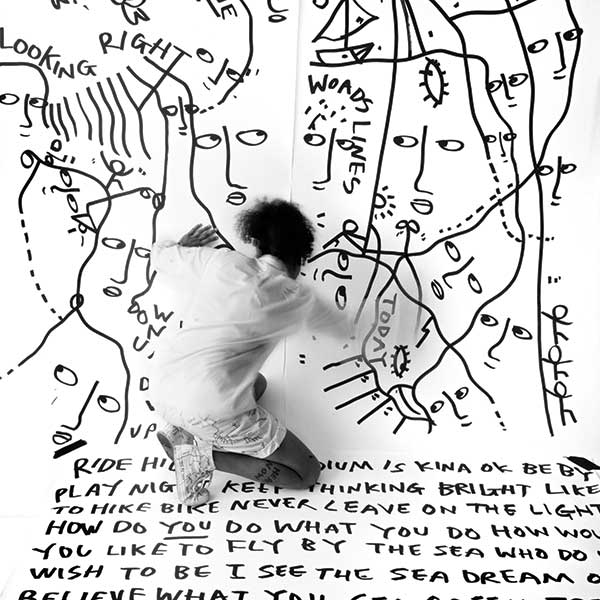 LOOKING RIGHT
WORDS LINES
TODAY
DOWN
UP
RIDE IS KINA OK BE BY
PLAY KEEP THINKING BRIGHT LIKE
TO HIKE BIKE NEVER LEAVE ON THE LIGHT
HOW DO YOU DO WHAT YOU DO HOW WOU
YOU LIKE TO FLY BY THE SEA WHO DO
WISH TO BE I SEE THE SEA DREAM O
BELIEVE WHAT YOU